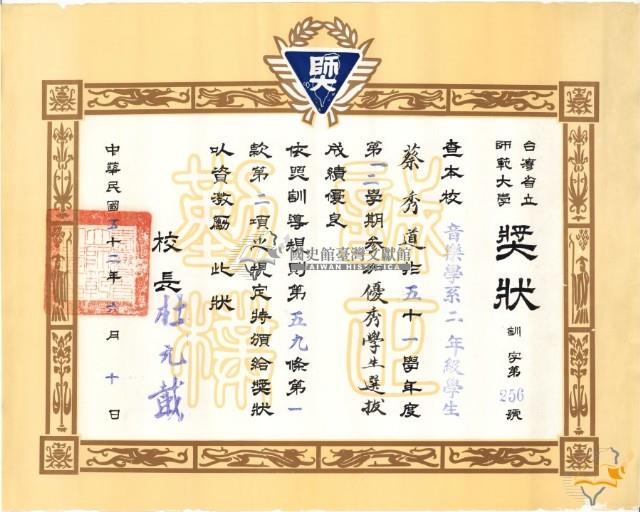 台灣省立
師範大學
獎狀
訓字第256號
查本校音樂學系二年級學生
蔡秀道於五十一學年度
第一二學期參加優秀學生選拔
成績優良
依照訓導規則第五九條第一
款第二項之規定特頒給獎狀
以資激勵 此狀
校長杜元載
中華民國五十二年六月十日
國史館臺灣文獻館
TAIWAN HISTORICA
誠正
勤樸
師大